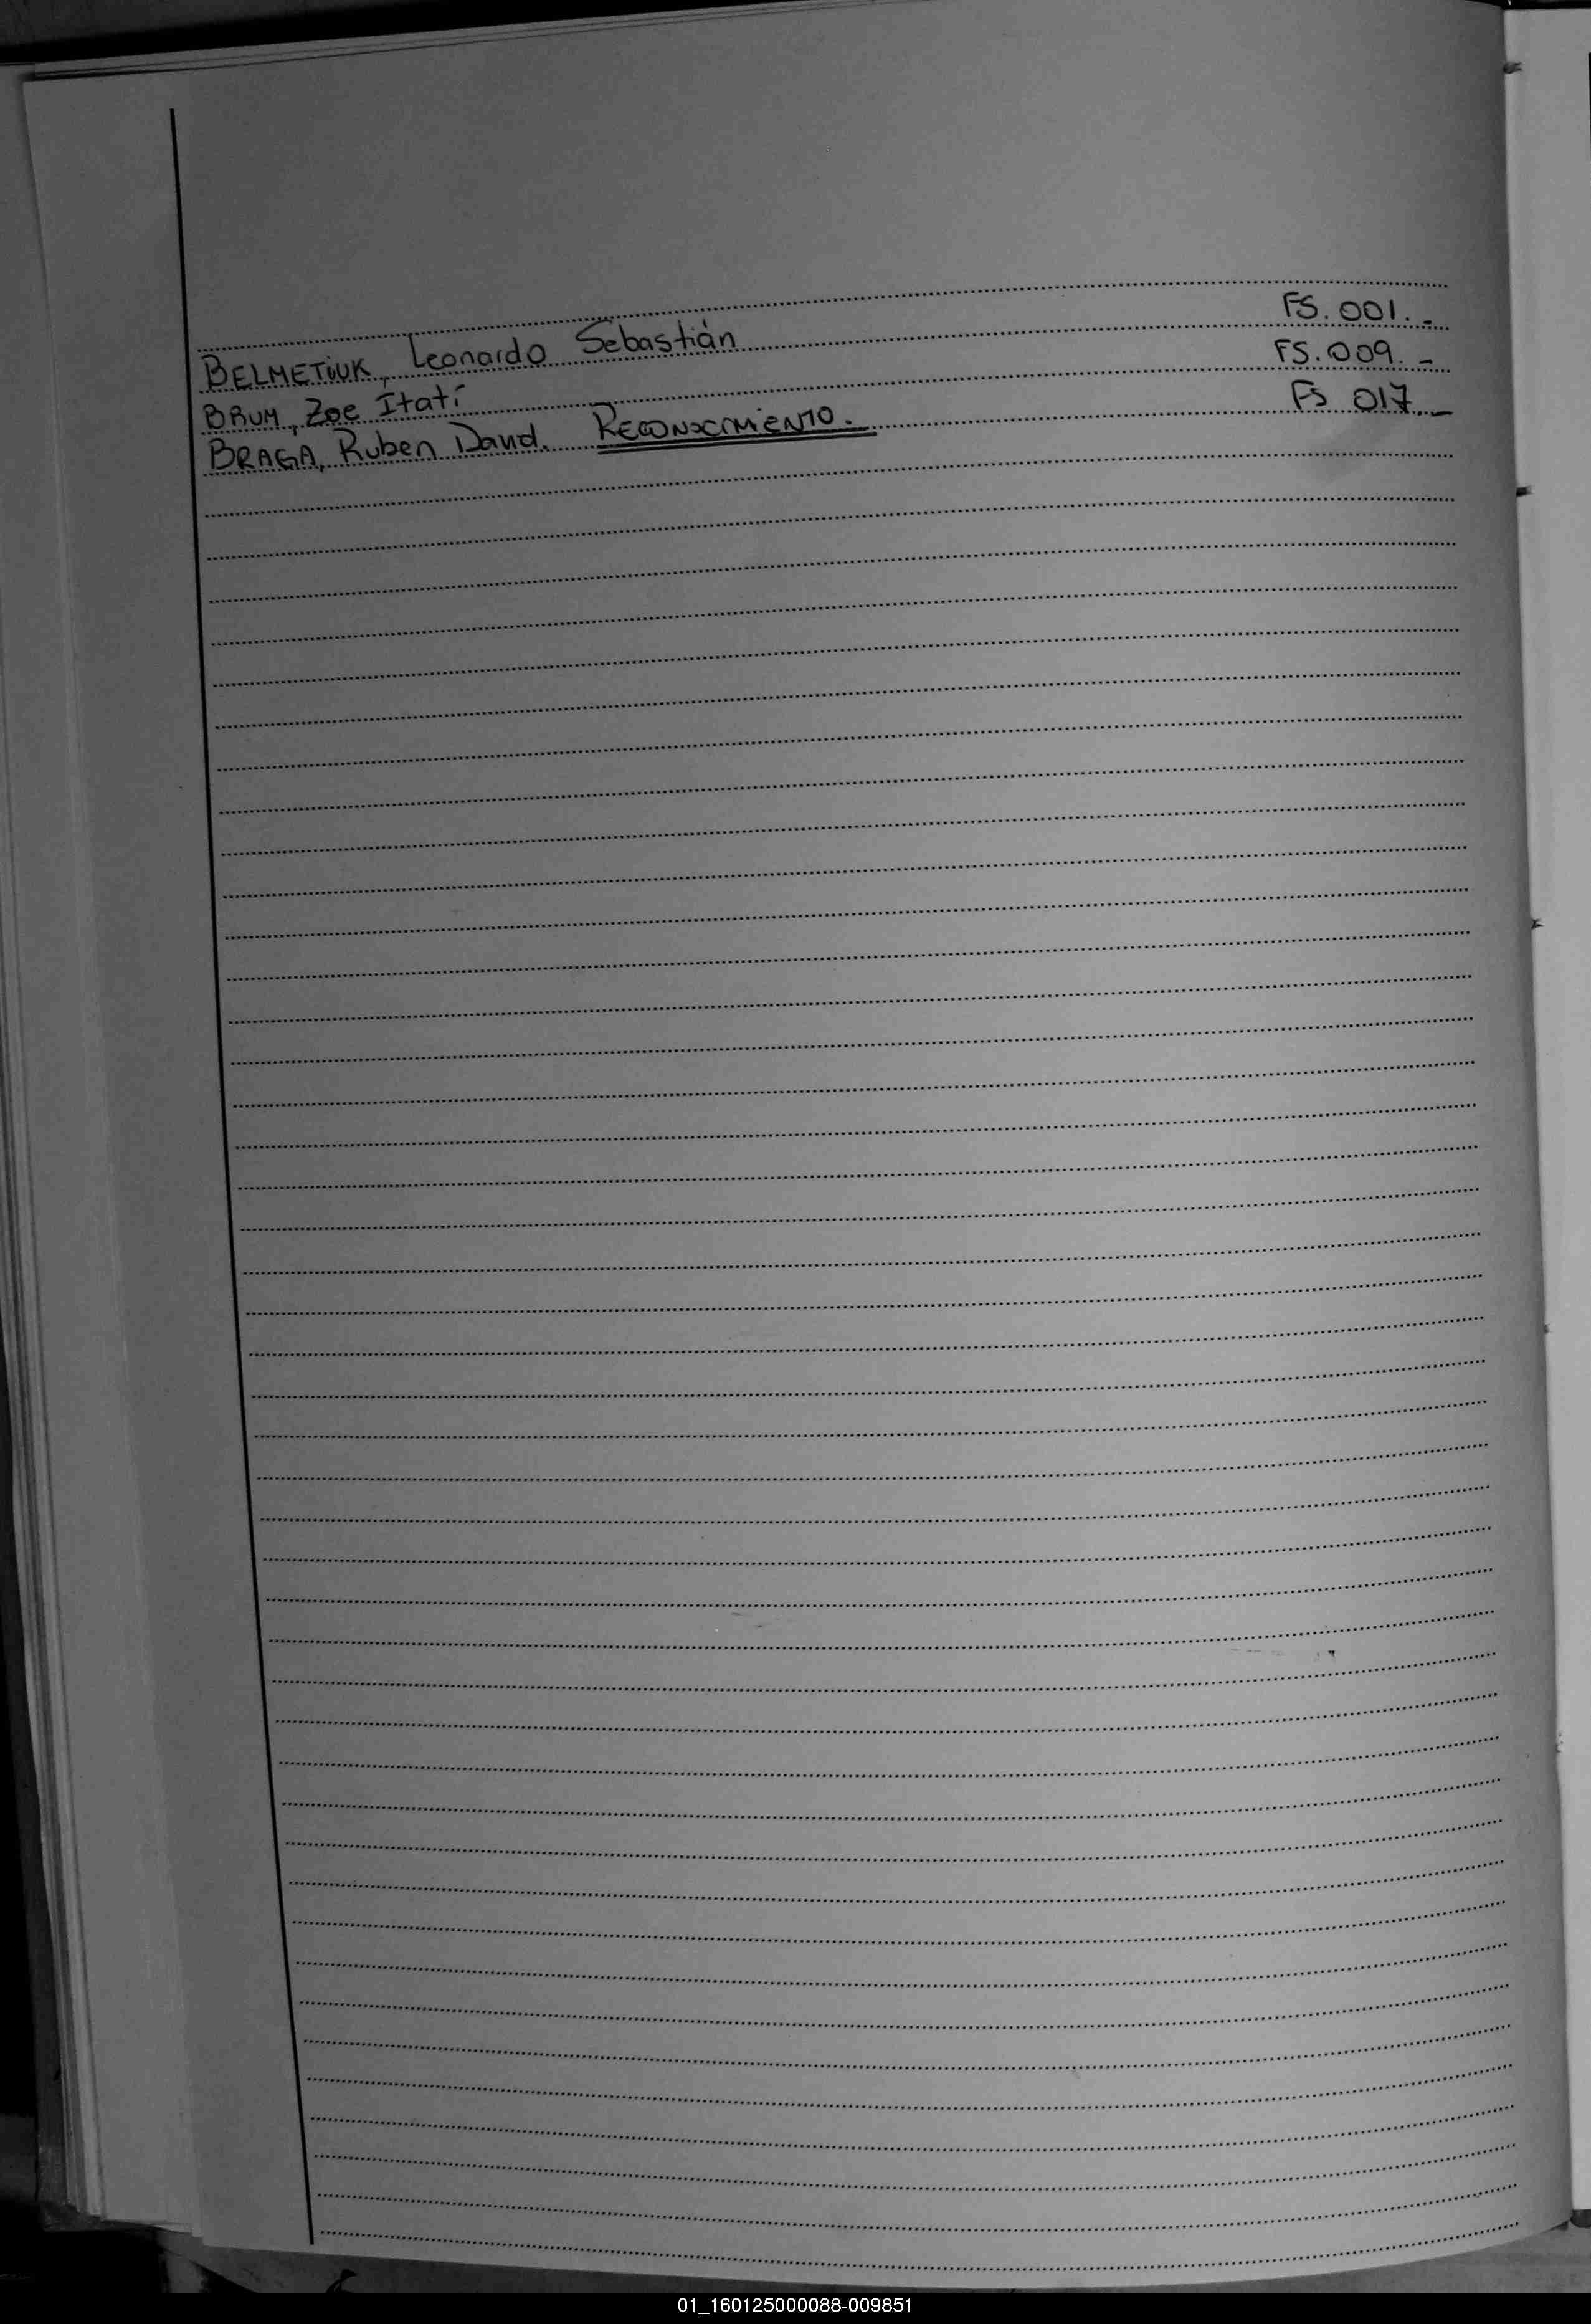 BELMETIUK, Leonardo Sebastián FS. 001. -
BRUM, Zoe Itatí FS. 009. -
BRAGA, Ruben David. RECONOCIMIENTO. FS 017. -
01_160125000088-009851